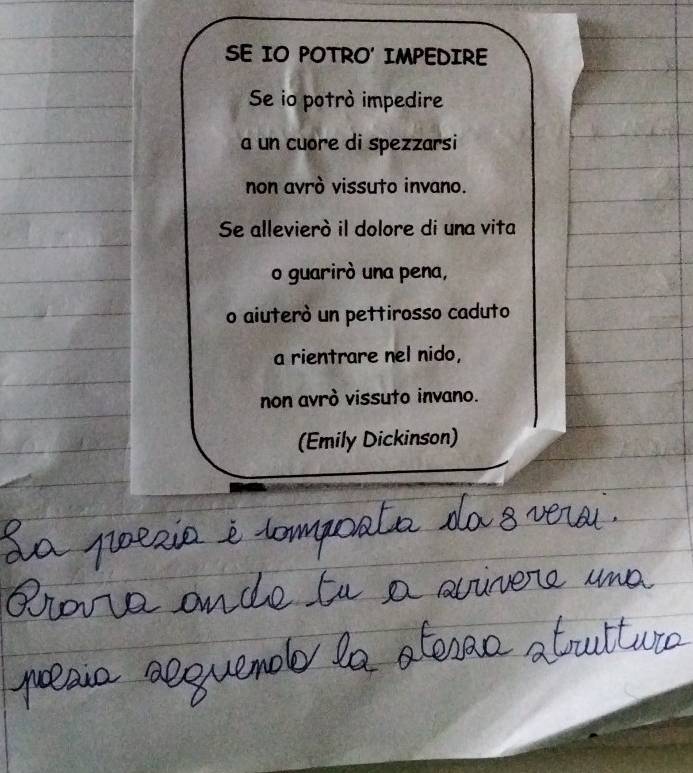 SE IO POTRO' IMPEDIRE
Se io potrò impedire
a un cuore di spezzarsi
non avrò vissuto invano.
Se allevierò il dolore di una vita
o guarirò una pena,
o aiuterò un pettirosso caduto
a rientrare nel nido,
non avrò vissuto invano.
(Emily Dickinson)
La poezia è composta da 8 versi.
Prova anche tu a scrivere una
poesia seguendo la stessa struttura